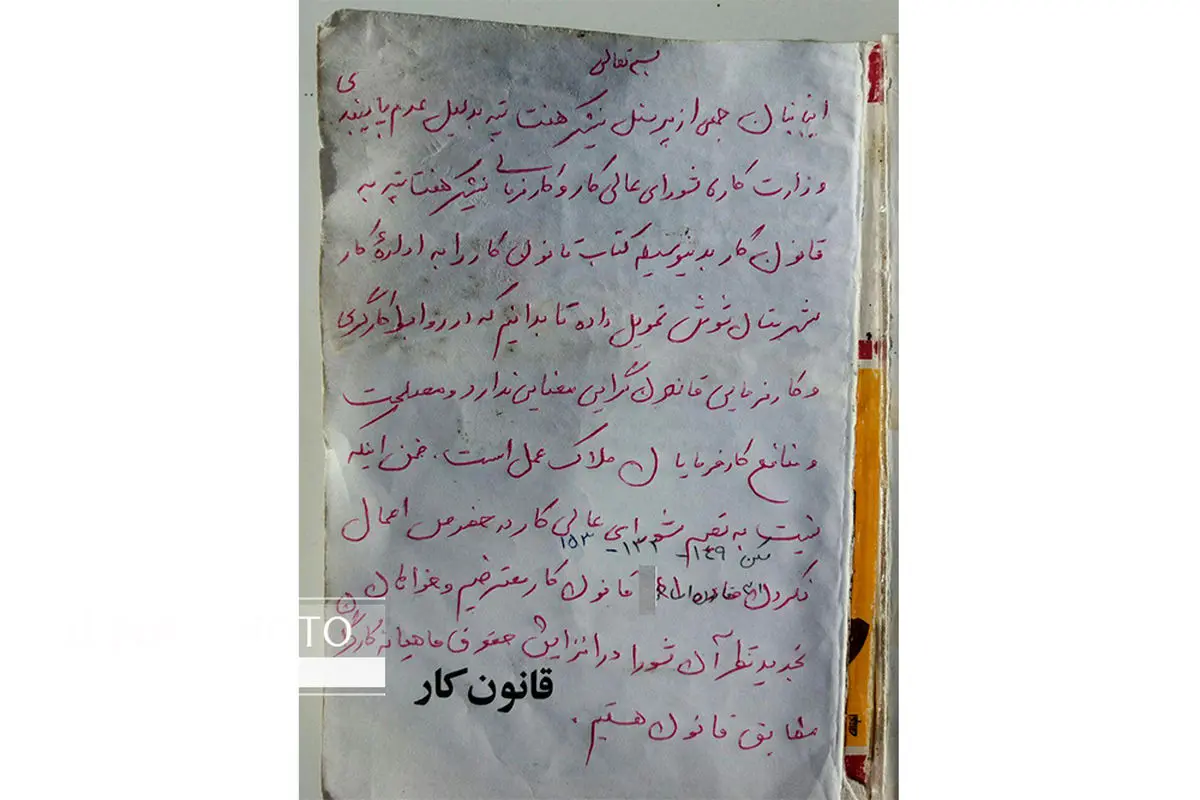 بسمه تعالی
اینجانبان جمعی از پرسنل نیشکر هفت تپه بدلیل عدم پایبندی
وزارت کار، شورای عالی کار و کارفرمایی نیشکر هفت تپه به
قانون کار بدینوسیله کتاب قانون کار را به اداره کار
شهرستان شوش تحویل داده تا بدانیم که در روابط کارگری
و کارفرمایی قانون گرایی معنایی ندارد و مصلحت
و منافع کارفرمایان ملاک عمل است. ضمن اینکه
نسبت به تصمیم شورای عالی کار در خصوص اعمال
۱۴۹ - ۱۳۳ - ۱۵۳
نکردن قانون کار معترضیم و خواهان
تجدید نظر آن شورا در افزایش حقوق ماهیانه کارگران
قانون کار
مطابق قانون هستیم.
TO